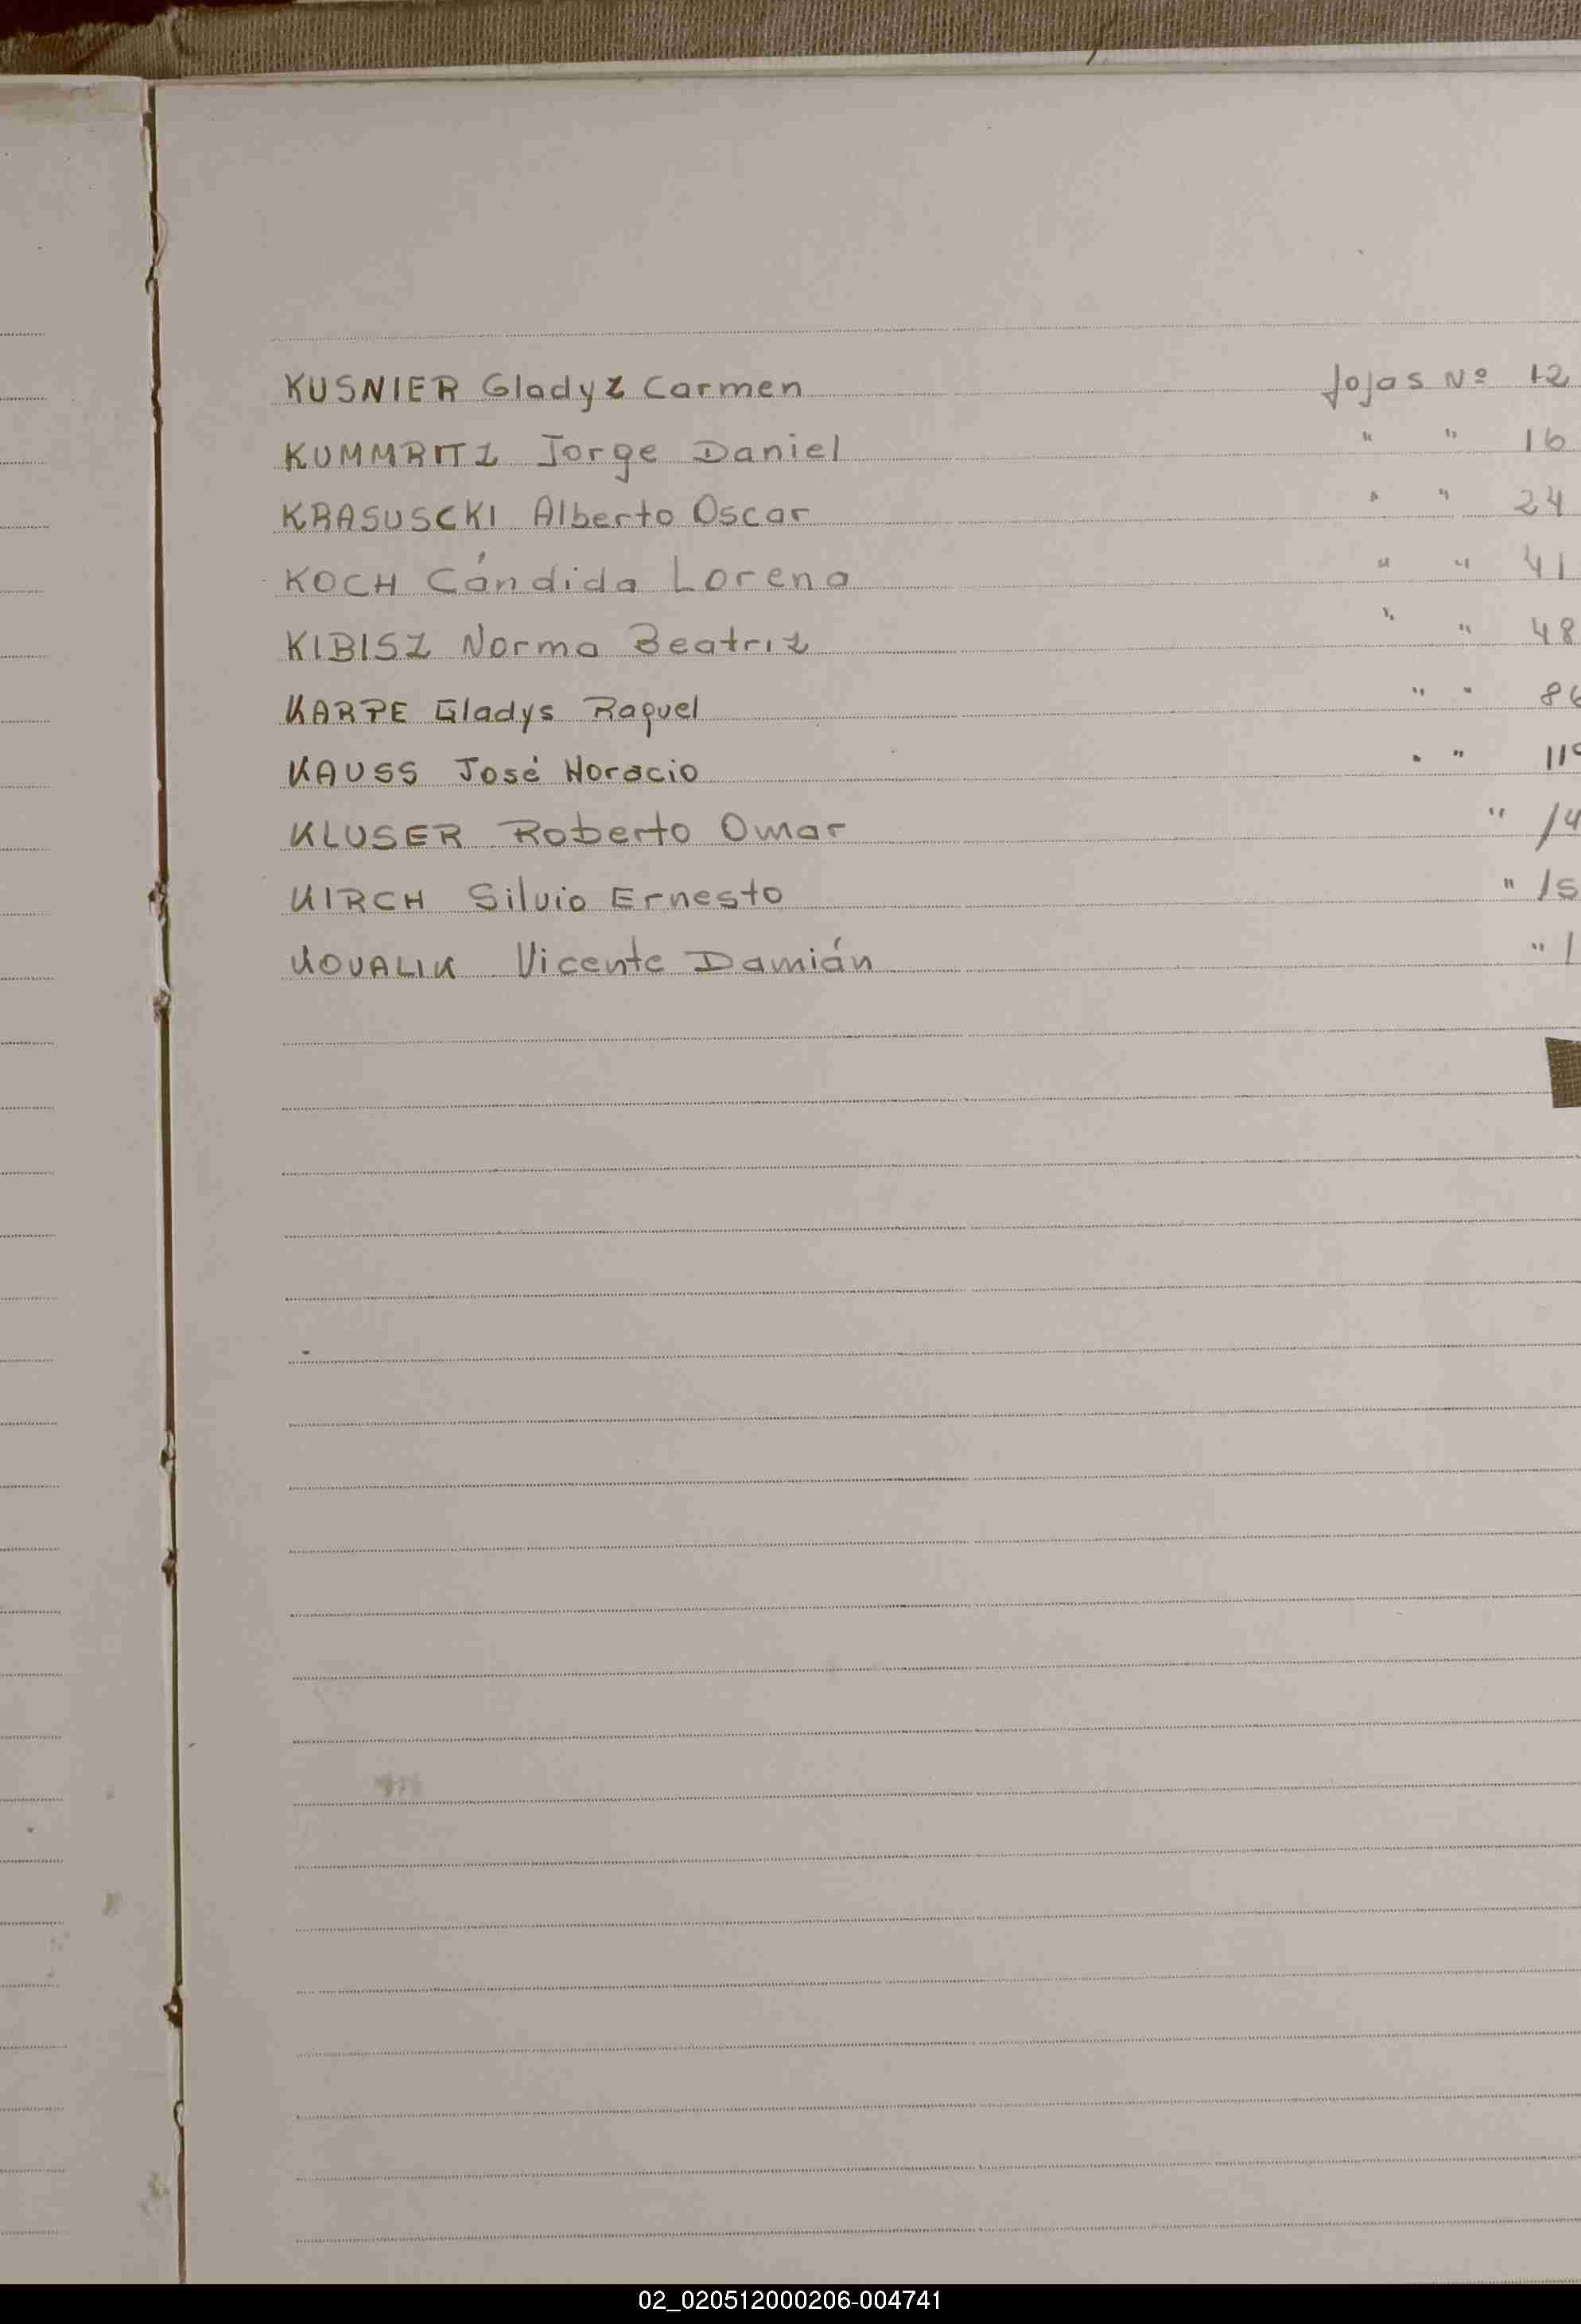 KUSNIER Gladyz Carmen fojas Nº 12
KUMMRITZ Jorge Daniel " " 16
KRASUSCKI Alberto Oscar " " 24
KOCH Cándida Lorena " " 41
KIBISZ Norma Beatriz " " 48
KARPE Gladys Raquel " "
KAUSS José Horacio " "
KLUSER Roberto Omar "
KIRCH Silvio Ernesto "
KOVALIK Vicente Damián "
02_020512000206-004741